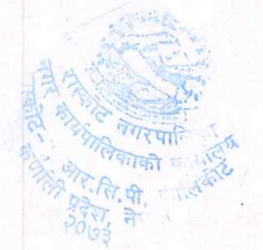 रास्कोट नगरपालिका
नगर कार्यपालिकाको कार्यालय
आर.सि.पी.
कर्णाली प्रदेश
२०७३